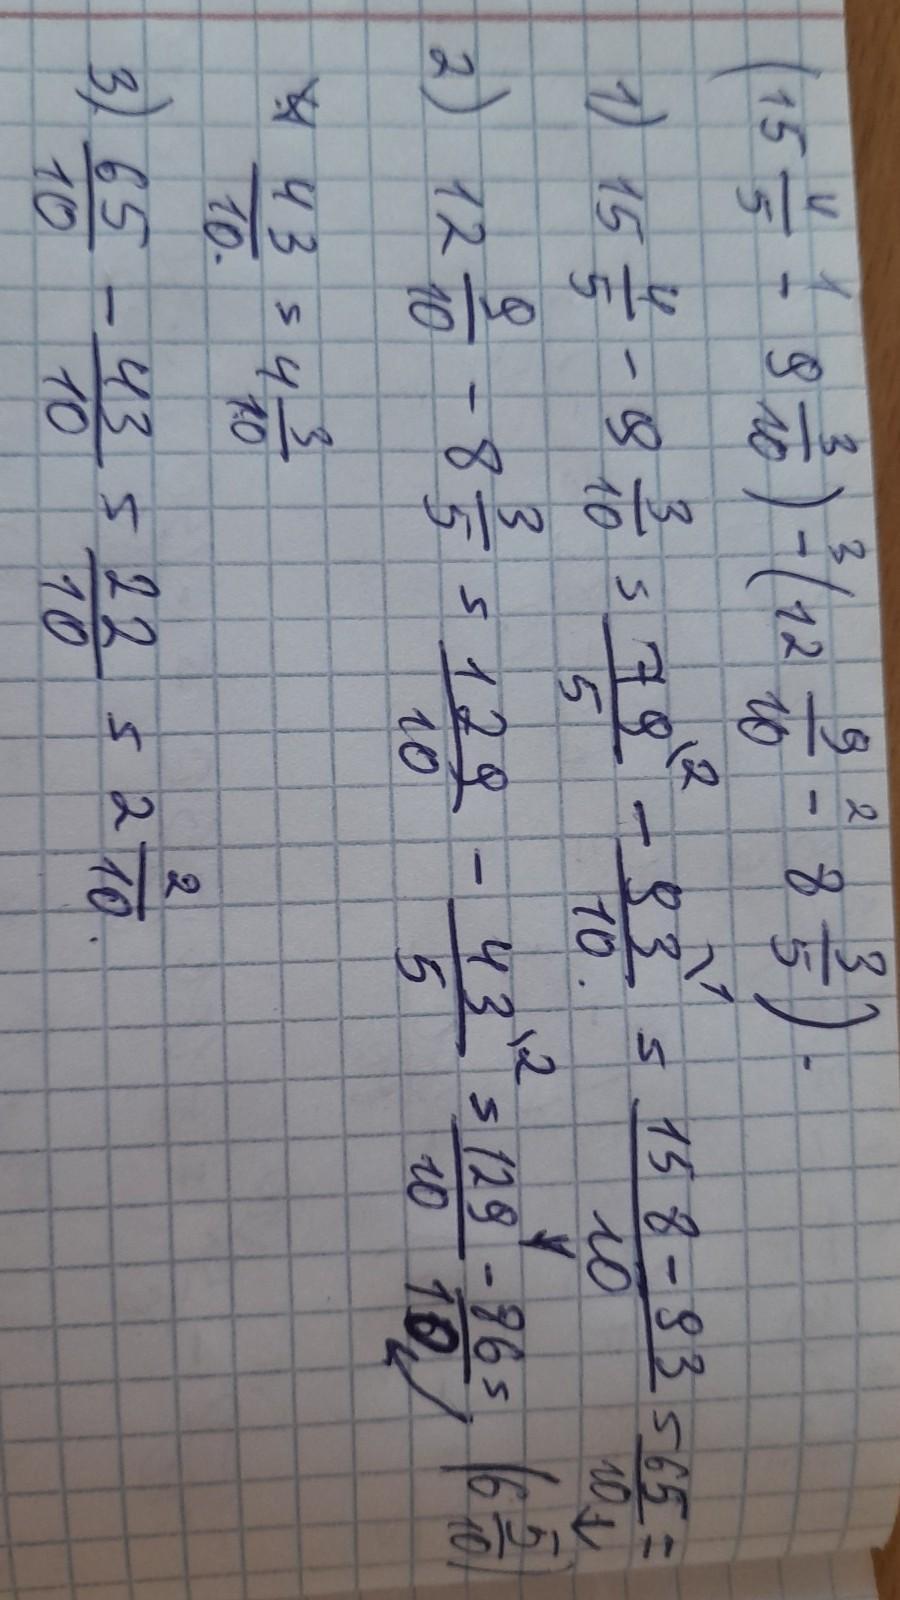 (15 4/5 -¹ 9 3/10) -³ (12 9/10 -² 8 3/5).
1) 15 4/5 - 9 3/10 = 79/5 \2 - 93/10 \1 = 158-93/10 = 65/10 =
2) 12 9/10 - 8 3/5 = 129/10 - 43/5 \2 = 129/10 - 86/10 = (6 5/10)
43/10 = 4 3/10
3) 65/10 - 43/10 = 22/10 = 2 2/10.